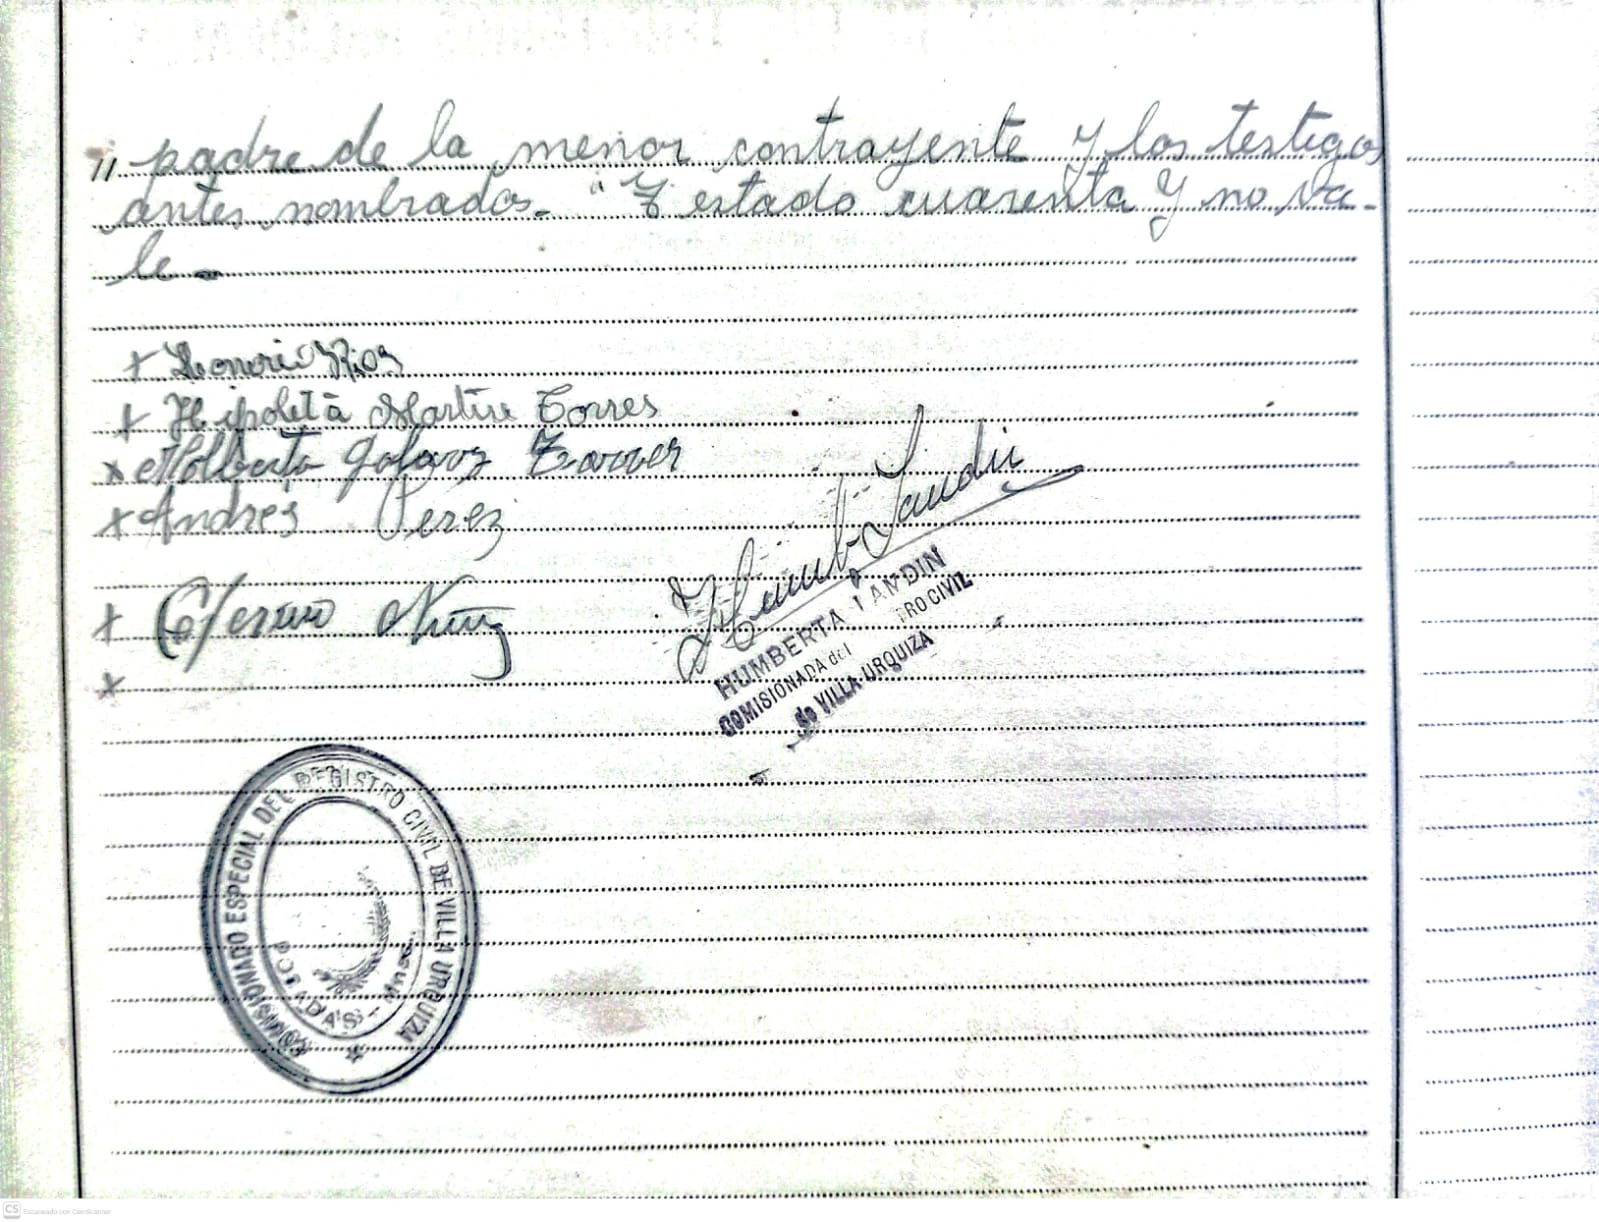 " padre de la menor contrayente y los testigos
antes nombrados.- "T estado cuarenta y no va-
le-
+ Honorio Rios
+ Hipoleta Martire Torres
x Galarz
x Andrés Perez
+ Nuñez
x
Humb Landin
HUMBERTA LANDIN
COMISIONADA del TRO CIVIL
de VILLA URQUIZA
COMISIONADO ESPECIAL DEL REGISTRO CIVIL DE VILLA URQUIZA
POSADAS - Mnes.
CS Escaneado con CamScanner